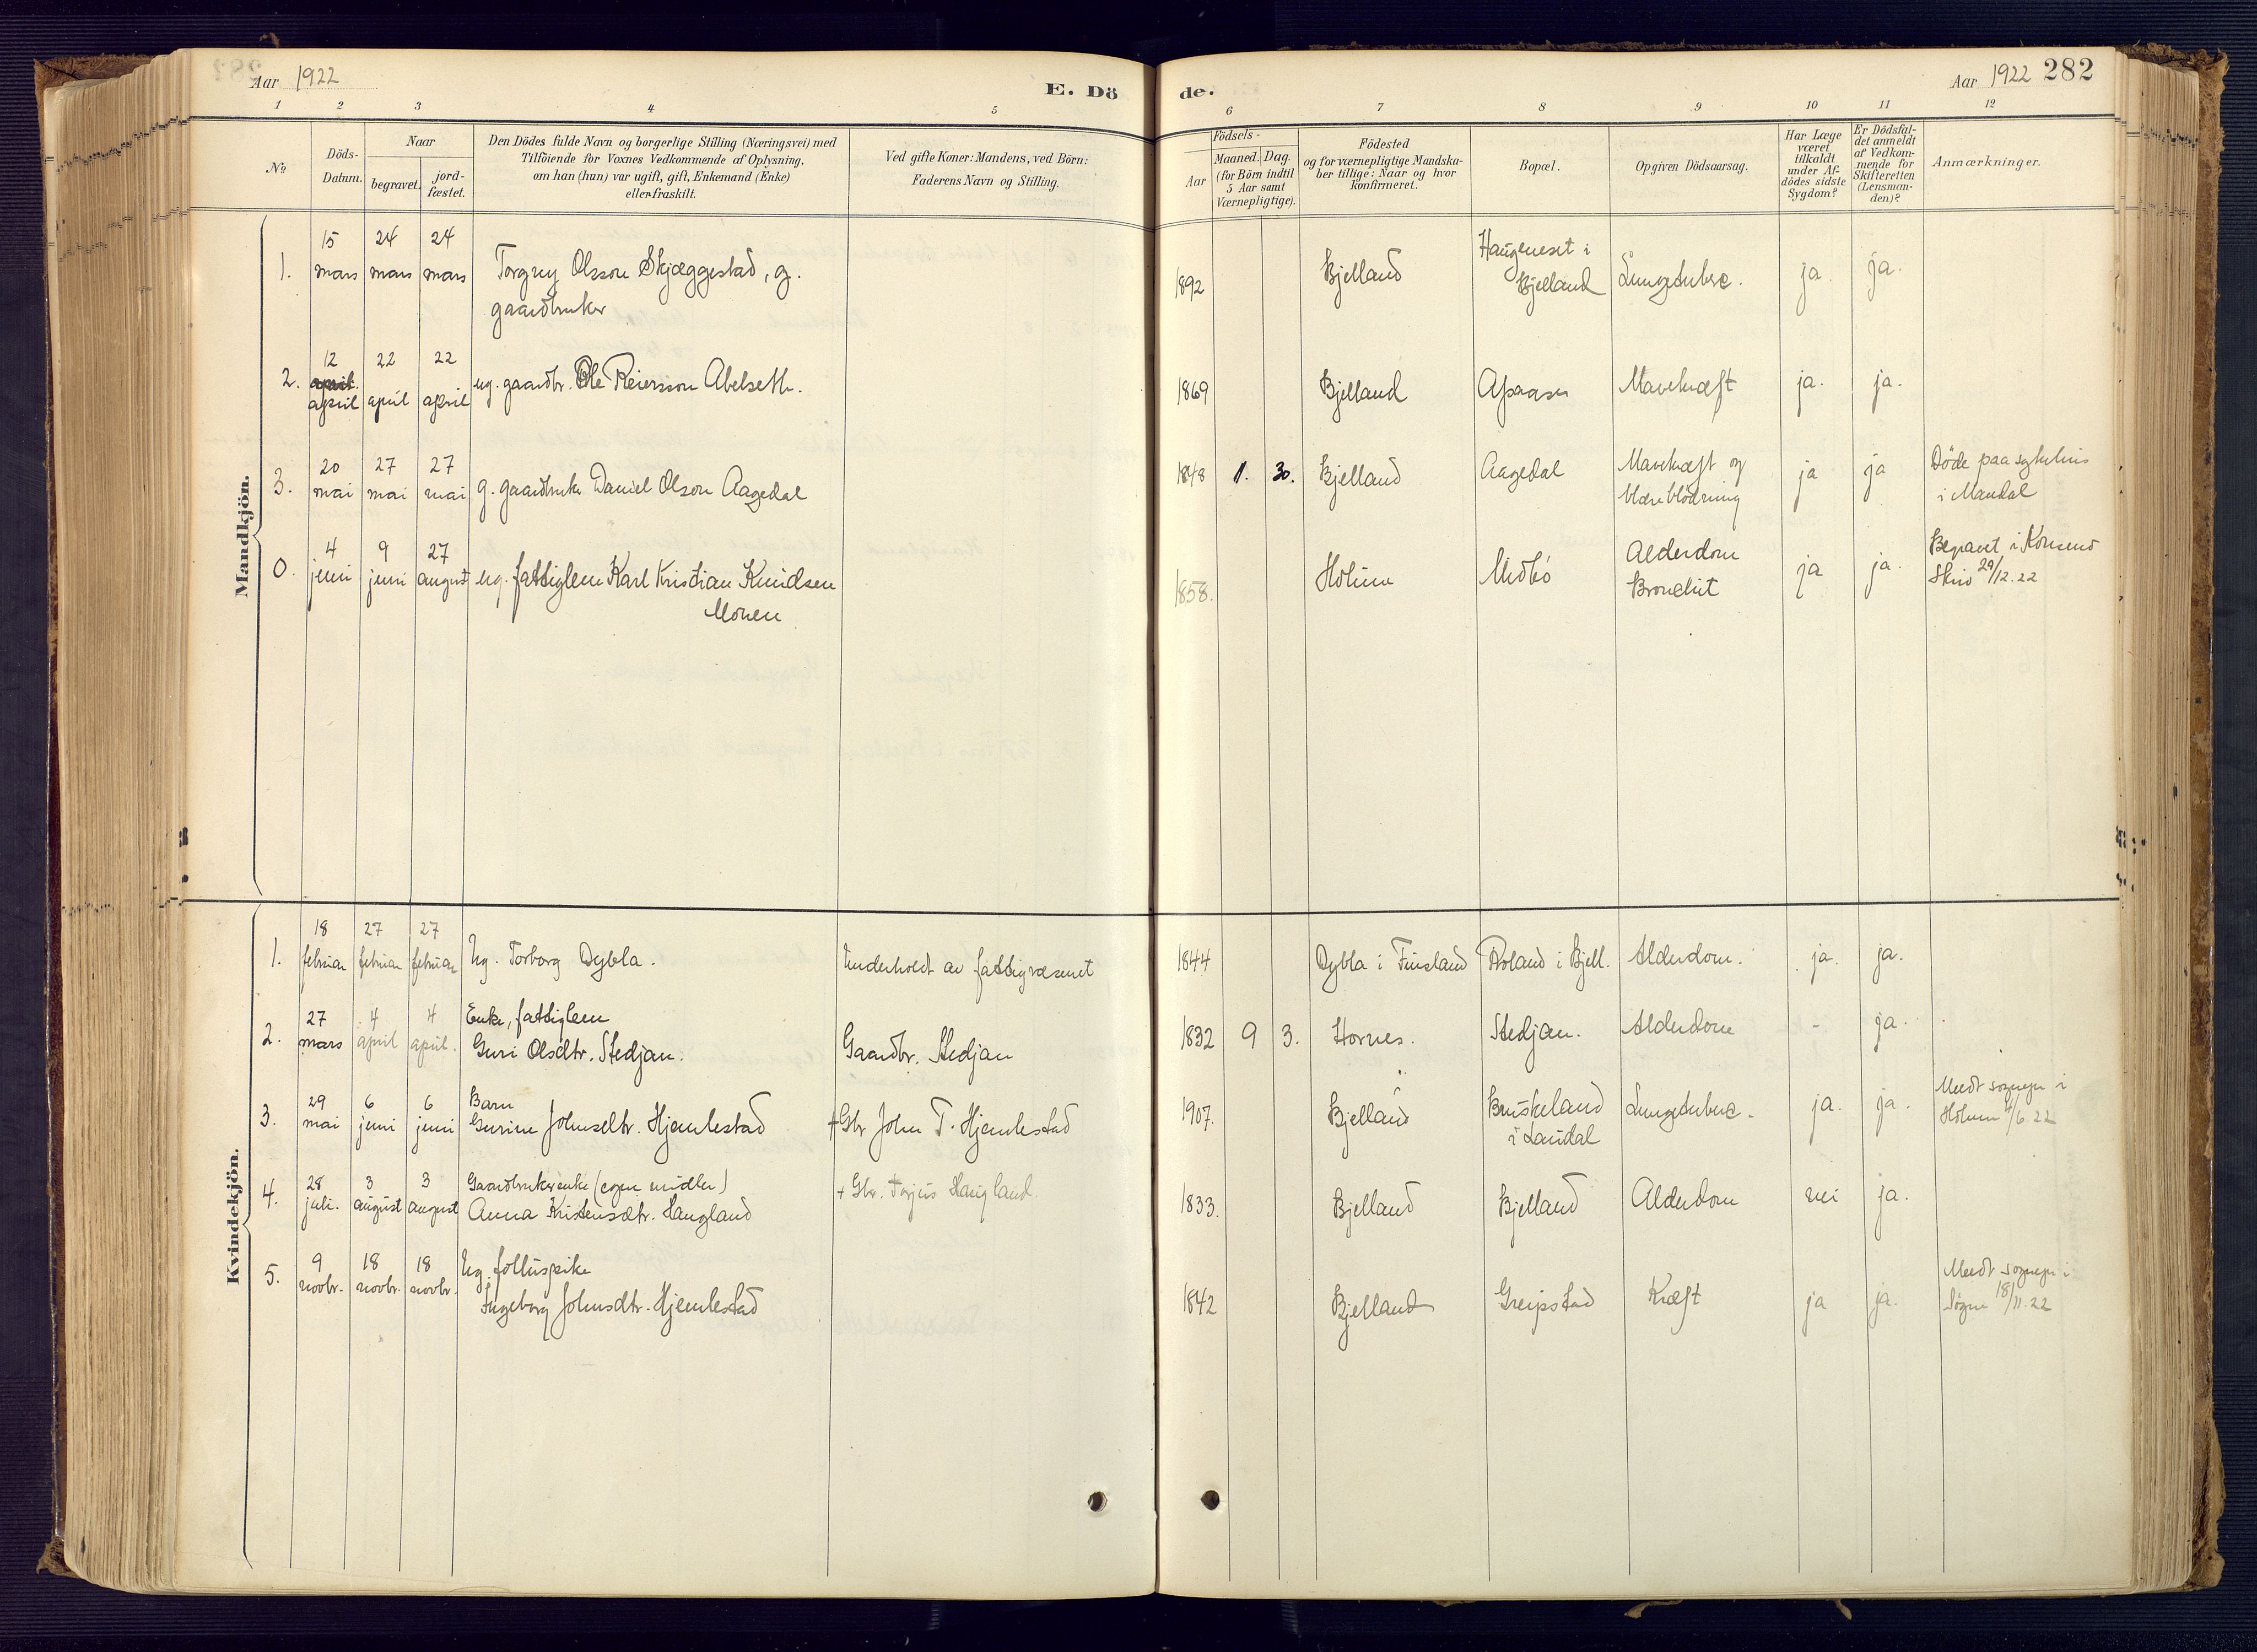 Aar 1922
E. Dö
de.
Aar 1922 282
1 2 3 4 5 6 7 8 9 10 11 12
No
Döds-
Datum.
Naar
begravet.
jord-
fæstet.
Den Dödes fulde Navn og borgerlige Stilling (Næringsvei) med
Tilföiende for Voxnes Vedkommende af Oplysning,
om han (hun) var ugift, gift, Enkemand (Enke)
eller fraskilt.
Ved gifte Koner: Mandens, ved Börn:
Faderens Navn og Stilling.
Födsels-
Aar
Maaned. Dag.
(for Börn indtil
5 Aar samt
Værnepligtige).
Födested
og for værnepligtige Mandska-
ber tillige: Naar og hvor
konfirmeret.
Bopæl.
Opgiven Dödsaarsag.
Har Læge
været
tilkaldt
under Af-
dödes sidste
Sygdom?
Er Dödsfal-
det anmeldt
af Vedkom-
mende for
Skifteretten
(Lensman-
den)?
Anmærkninger.
Mandkjön.
15 24 24
1. mars mars mars Torgny Olsson Skjæggestad, g.
gaardbruker
1892 Bjelland Haugneset i
Bjelland Lungetuberc. ja. ja.
12 22 22
2. april
april april april ug. gaardbr. Ole Reiersson Abelseth.
1869 Bjelland Apaasen Mavekræft ja. ja.
20 27 27
3. mai mai mai g. gaardbruker Daniel Olson Aagedal
1848 1. 30. Bjelland Aagedal Mavekræft og
blæreblödning ja ja Döde paa sykehus
i Mandal
4 9 27
0. juni juni august ug. fattiglem Karl Kristian Knudsen
Monen
1858. Holum Midbö Alderdom
Bronchit ja ja. Begravet i Konsmo
Skriv 29/12.22
Kvindekjön.
18 27 27
1. februar februar februar Ug. Torborg Dybla. Underholdt av fattigvæsenet
1844 Dybla i Finsland Röland i Bjell. Alderdom. ja. ja.
27 4 4 Enke, fattiglem
2. mars april april. Guri Olsdtr. Stedjan. Gaardbr. Stedjan
1832 9 3. Hornes. Stedjan. Alderdom - ja.
29 6 6 Barn
3. mai juni juni Gurine Johnsdtr. Hjemlestad +Gbr John T. Hjemlestad
1907. Bjelland Bruskeland
i Laudal Lungetuberc. ja. ja. Meldt sognepr i
Holum 4/6.22
28 3 3 Gaardbrukerenke (egne midler)
4. juli. august august Anna Kristensdtr. Haugland + Gbr. Terjus Haugland.
1833. Bjelland Bjelland Alderdom nei ja.
9 18 18 Ug. folluspike
5. novbr. novbr. novbr. Ingeborg Johnsdtr. Hjemlestad
1842 Bjelland Greipstad Kræft ja ja. Meldt sognepr i
Søgne 18/11.22